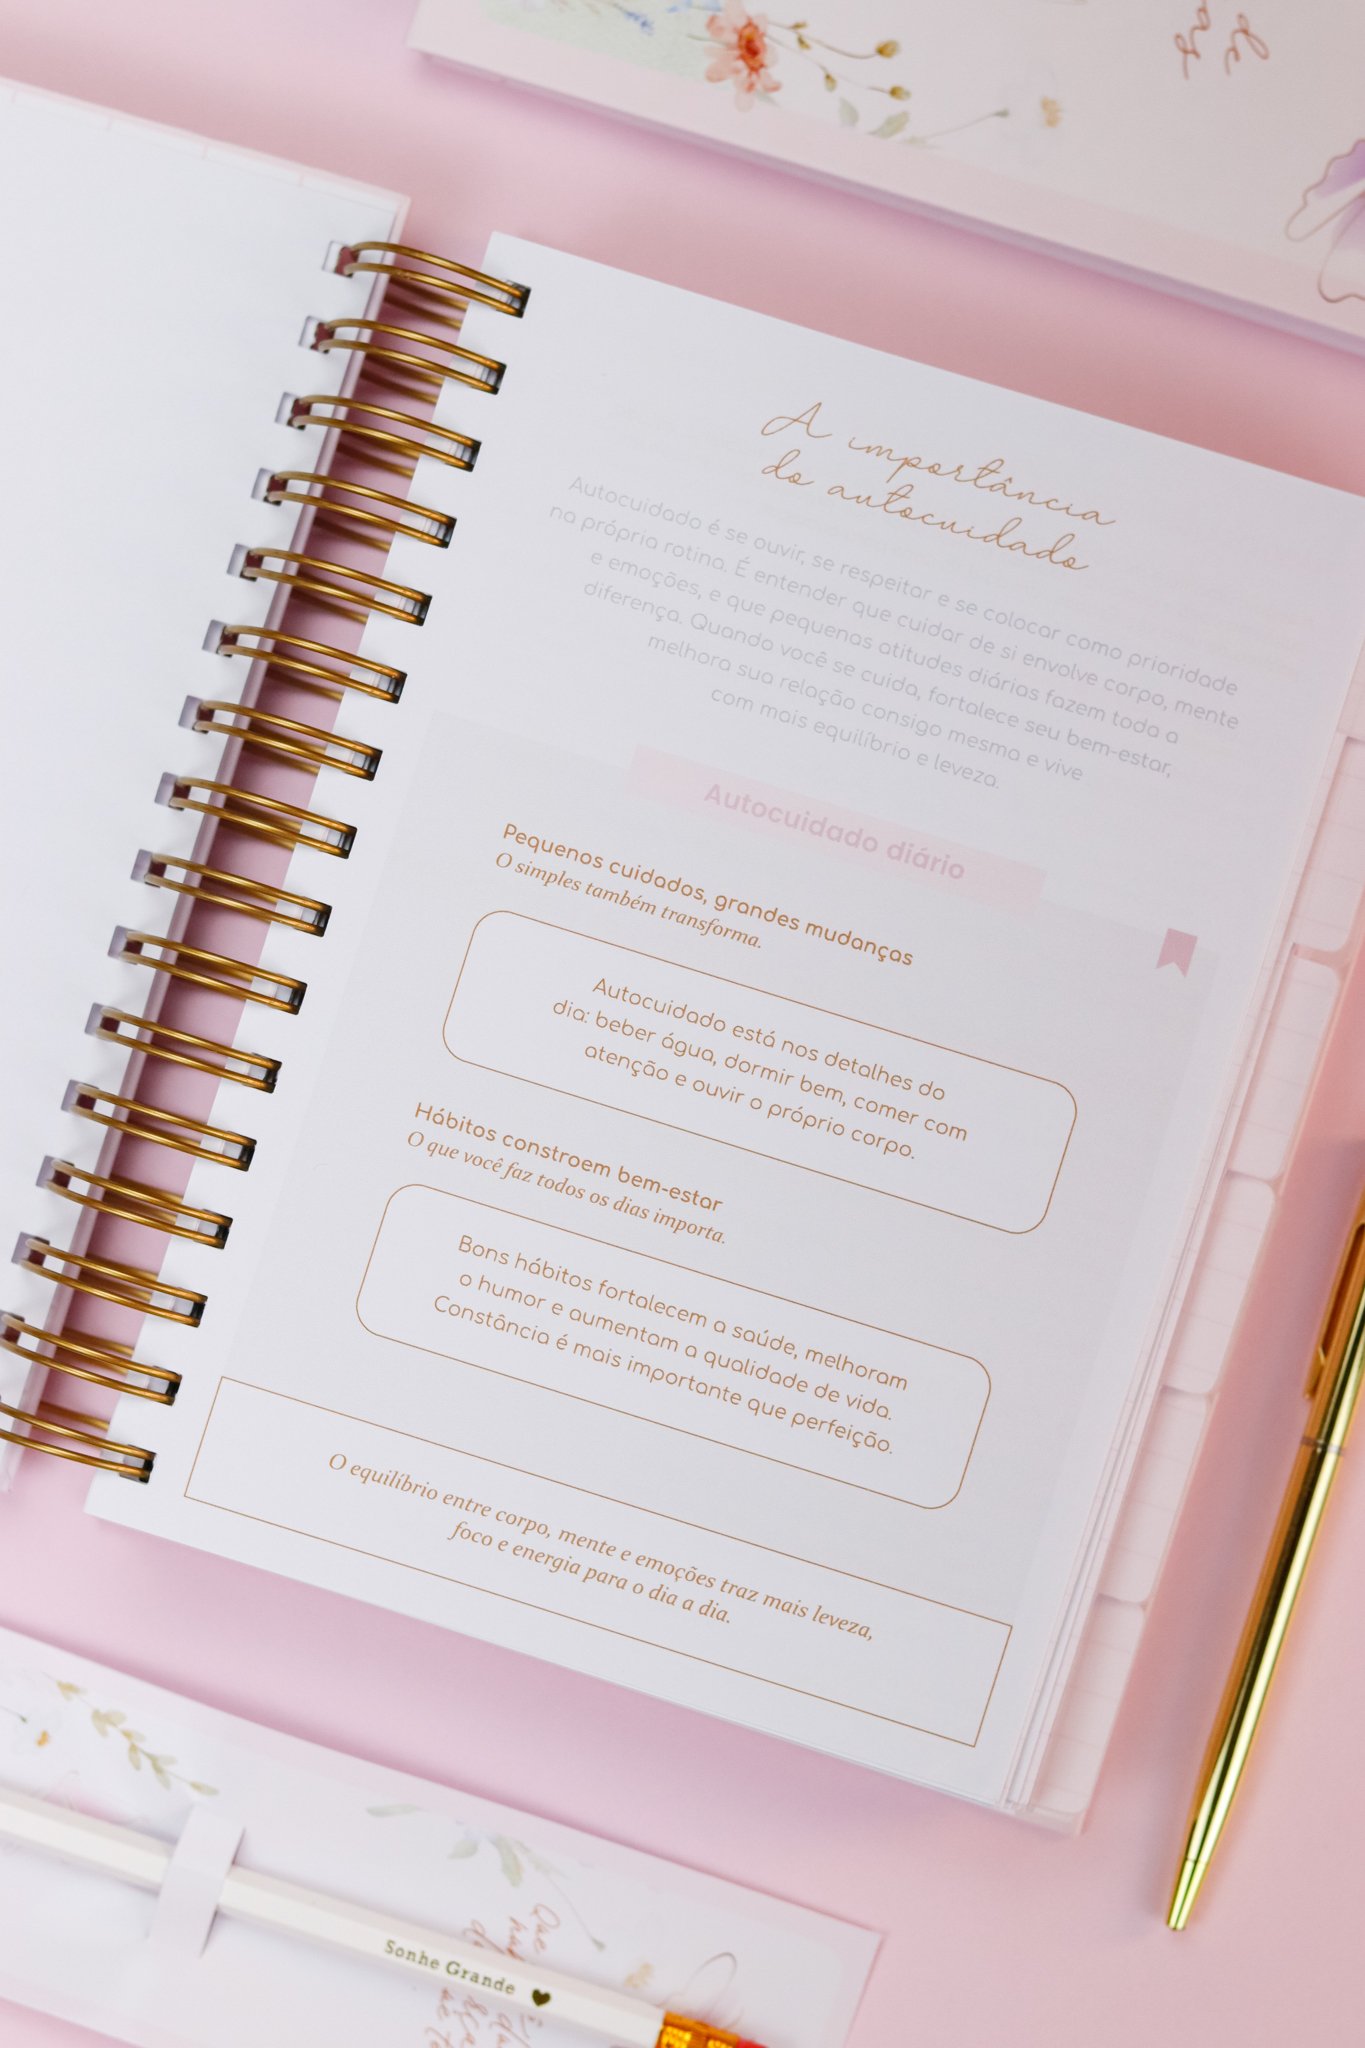 A importância
do autocuidado
Autocuidado é se ouvir, se respeitar e se colocar como prioridade
na própria rotina. É entender que cuidar de si envolve corpo, mente
e emoções, e que pequenas atitudes diárias fazem toda a
diferença. Quando você se cuida, fortalece seu bem-estar,
melhora sua relação consigo mesma e vive
com mais equilíbrio e leveza.
Autocuidado diário
Pequenos cuidados, grandes mudanças
O simples também transforma.
Autocuidado está nos detalhes do
dia: beber água, dormir bem, comer com
atenção e ouvir o próprio corpo.
Hábitos constroem bem-estar
O que você faz todos os dias importa.
Bons hábitos fortalecem a saúde, melhoram
o humor e aumentam a qualidade de vida.
Constância é mais importante que perfeição.
O equilíbrio entre corpo, mente e emoções traz mais leveza,
foco e energia para o dia a dia.
Sonhe Grande
Que